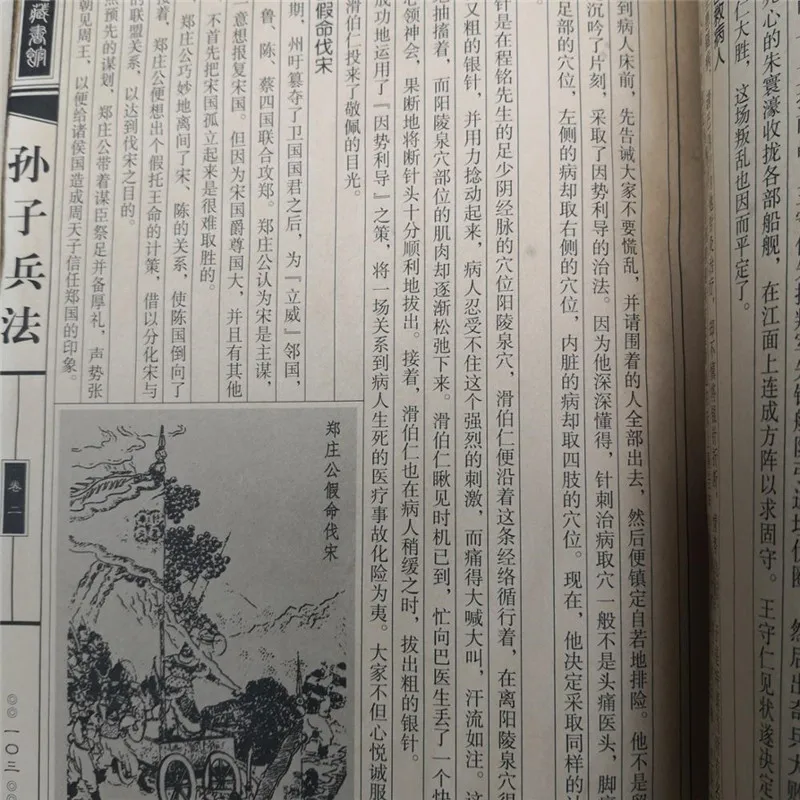 死心的朱寰濠收拢各部船舰，在江面上连成方阵以求固守。王守仁见状遂决定
仁大胜，这场叛乱也因而平定了。
病人
到病人床前，先告诫大家不要慌乱，并请围着的人全部出去，然后便镇定自若地排险。他不是
沉吟了片刻，采取了因势利导的治法。因为他深深懂得，针刺治病取穴一般不是头痛医头，脚
足部的穴位，左侧的病却取右侧的穴位，内脏的病却取四肢的穴位。现在，他决定采取同样的
针是在程铭先生的足少阴经脉的穴位阳陵泉穴，滑伯仁便沿着这条经络循行着，在离阳陵泉穴很
又粗的银针，并用力捻动起来，病人忍受不住这个强烈的刺激，而痛得大喊大叫，汗流如注。这
地抽搐着，而阳陵泉穴部位的肌肉却逐渐松弛下来。滑伯仁瞅见时机已到，忙向巴医生丢了一个快
心领神会，果断地将断针头十分顺利地拔出。接着，滑伯仁也在病人稍缓之时，拔出粗的银针。
成功地运用了『因势利导』之策，将一场关系到病人生死的医疗事故化险为夷。大家不但心悦诚服
滑伯仁投来了敬佩的目光。
假命伐宋
期，州吁篡夺了卫国国君之后，为『立威』邻国，
鲁、陈、蔡四国联合攻郑。郑庄公认为宋是主谋，
意想报复宋国。但因为宋国爵尊国大，并且有其他
不首先把宋国孤立起来是很难取胜的。
郑庄公巧妙地离间了宋、陈的关系，使陈国倒向了
接着，郑庄公便想出个假托王命的计策，借以分化宋与
的联盟关系，以达到伐宋之目的。
照预先的谋划，郑庄公带着谋臣祭足并备厚礼，声势张
朝见周王，以便给诸侯国造成周天子信任郑国的印象。
郑庄公假命伐宋
藏书馆
孙子兵法
卷二
一〇三